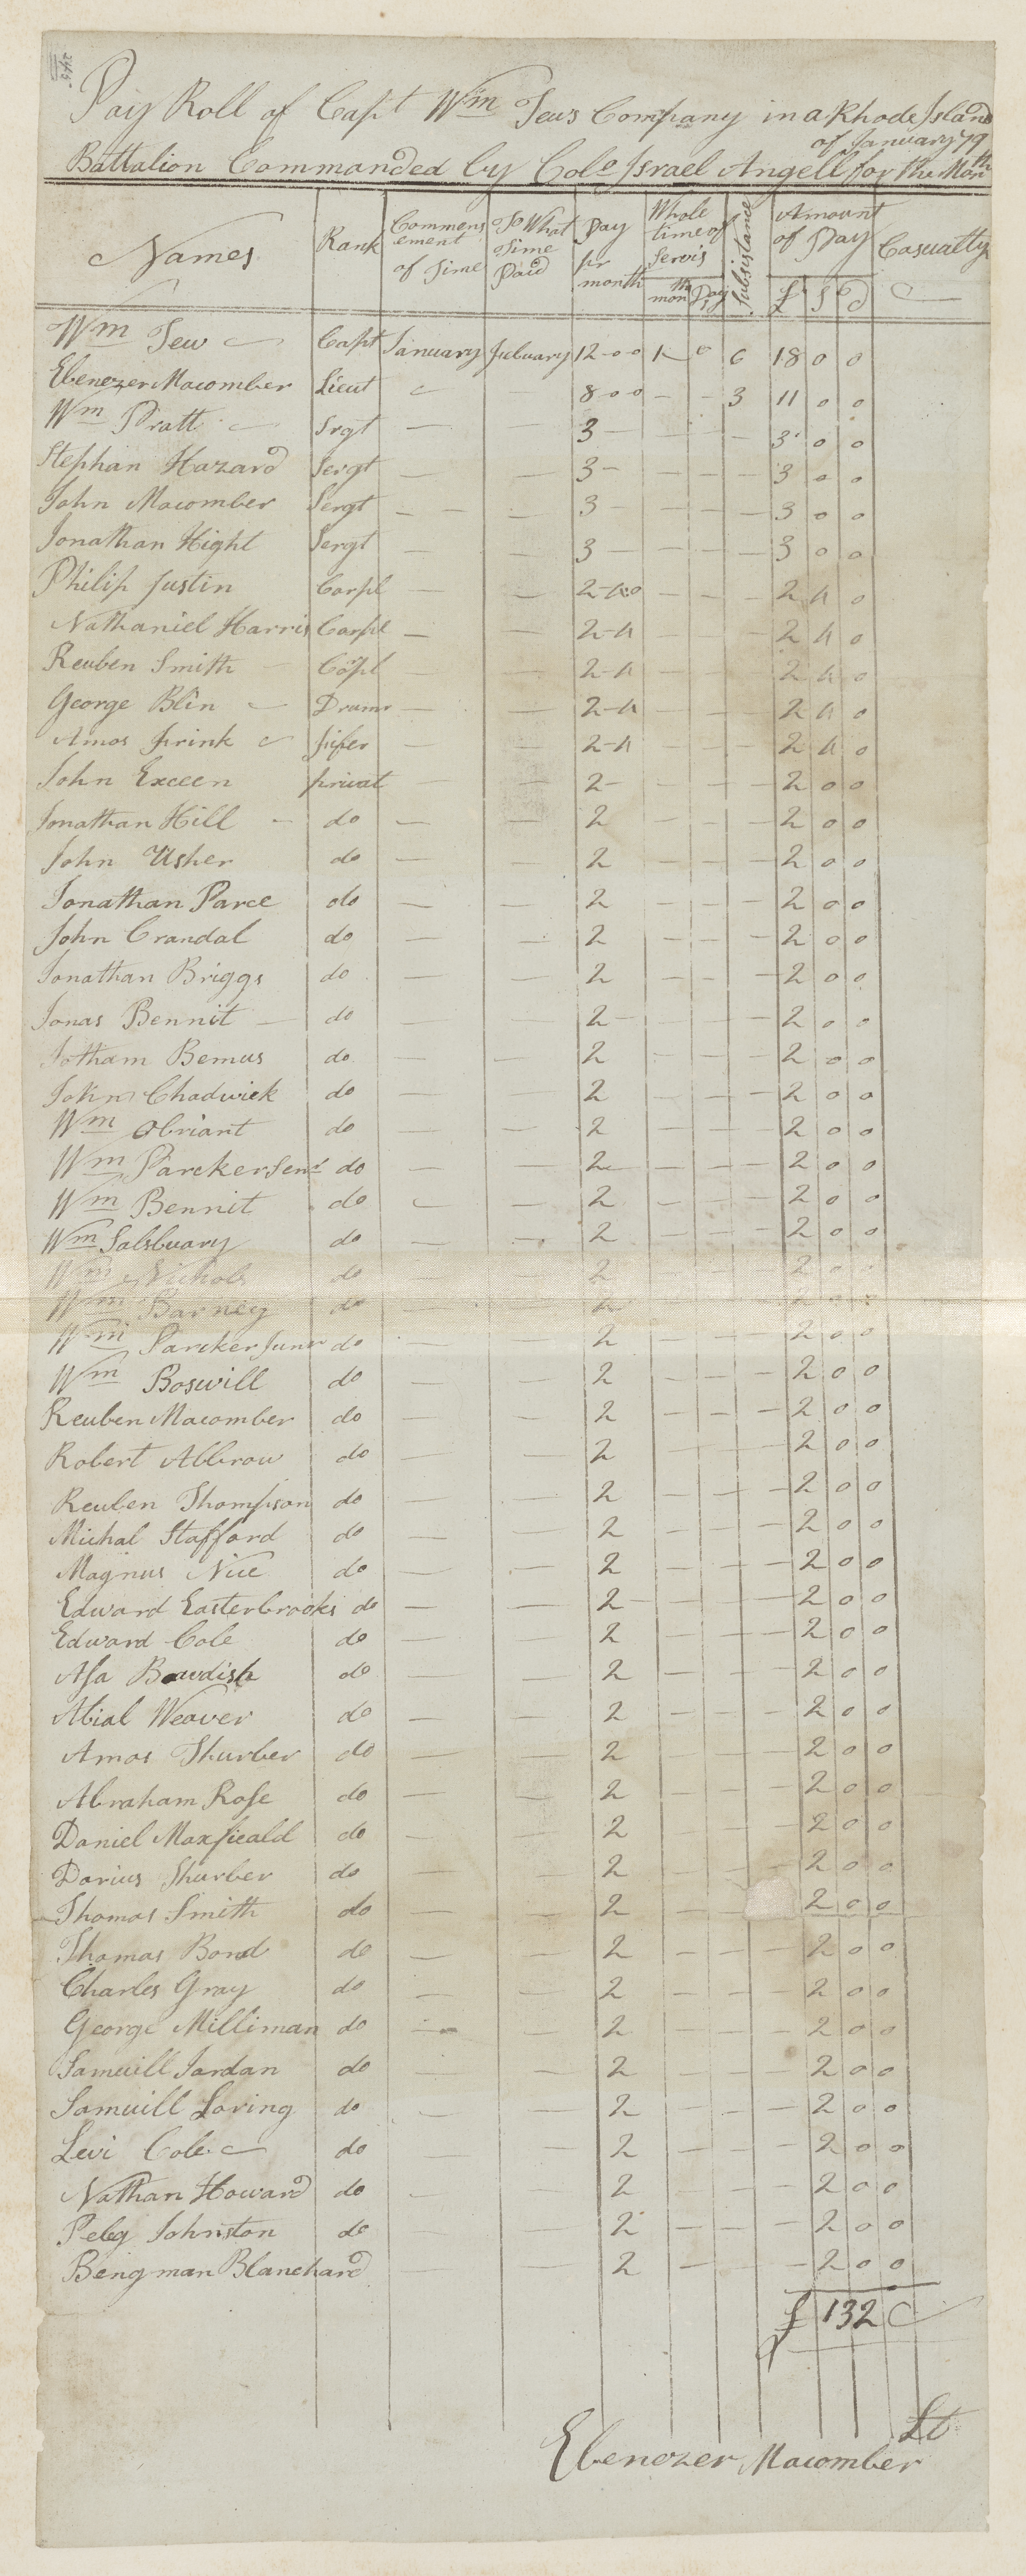 Pay Roll of Capt Wm Tews Company in a Rhode Island
of January 79
Battalion Commanded by Cole Israel Angell for the Month
Names Rank Commencement of Time To What Time Paid Pay pr month Whole time of Servis month Days Subsistance Amount of Pay £ S D Casualty
Wm Tew Capt January Febuary 12-0-0 1 0 6 18 0 0
Ebenezer Macomber Lieut — — 8-0-0 - - 3 11 0 0
Wm Pratt Srgt — — 3 — — — 3 0 0
Stephan Hazard Sergt — — 3 — — — 3 0 0
John Macomber Sergt — — 3 — — — 3 0 0
Jonathan Hight Sergt — — 3 — — — 3 0 0
Philip Justin Corpl — — 2-4-0 — — — 2 4 0
Nathaniel Harris Corpl — — 2-4 — — — 2 4 0
Reuben Smith Copl — — 2-4 — — — 2 4 0
George Blin Drumr — — 2-4 — — — 2 4 0
Amos Frink fifer — — 2-4 — — — 2 4 0
John Exceen privat — — 2 — — — 2 0 0
Jonathan Hill do — — 2 — — — 2 0 0
John Usher do — — 2 — — — 2 0 0
Jonathan Parce do — — 2 — — — 2 0 0
John Crandal do — — 2 — — — 2 0 0
Jonathan Briggs do — — 2 — — — 2 0 0
Jonas Bennit do — — 2 — — — 2 0 0
Jotham Bemus do — — 2 — — — 2 0 0
John Chadwick do — — 2 — — — 2 0 0
Wm Obriant do — — 2 — — — 2 0 0
Wm Parcker Senr do — — 2 — — — 2 0 0
Wm Bennit do — — 2 — — — 2 0 0
Wm Salsbuary do — — 2 — — — 2 0 0
Wm Nichols do — — 2 — — — 2 0 0
Wm Barney do — — 2 — — — 2 0 0
Wm Parcker Junr do — — 2 — — — 2 0 0
Wm Boswill do — — 2 — — — 2 0 0
Reuben Macomber do — — 2 — — — 2 0 0
Robert Abbrow do — — 2 — — — 2 0 0
Reuben Thompson do — — 2 — — — 2 0 0
Michal Stafford do — — 2 — — — 2 0 0
Magnus Nice do — — 2 — — — 2 0 0
Edward Easterbrooks do — — 2 — — — 2 0 0
Edward Cole do — — 2 — — — 2 0 0
Asa Bowdish do — — 2 — — — 2 0 0
Abial Weaver do — — 2 — — — 2 0 0
Amos Thurber do — — 2 — — — 2 0 0
Abraham Rose do — — 2 — — — 2 0 0
Daniel Maxfieald do — — 2 — — — 2 0 0
Darius Thurber do — — 2 — — — 2 0 0
Thomas Smith do — — 2 — — 2 0 0
Thomas Bond do — — 2 — — — 2 0 0
Charles Gray do — — 2 — — — 2 0 0
George Milliman do — — 2 — — — 2 0 0
Samuill Jordan do — — 2 — — — 2 0 0
Samuill Loring do — — 2 — — — 2 0 0
Levi Cole do — — 2 — — — 2 0 0
Nathan Howard do — — 2 — — — 2 0 0
Peleg Johnston do — — 2 — — — 2 0 0
Bengman Blanchard — — 2 — — — 2 0 0
£ 132
Lt
Ebenezer Macomber